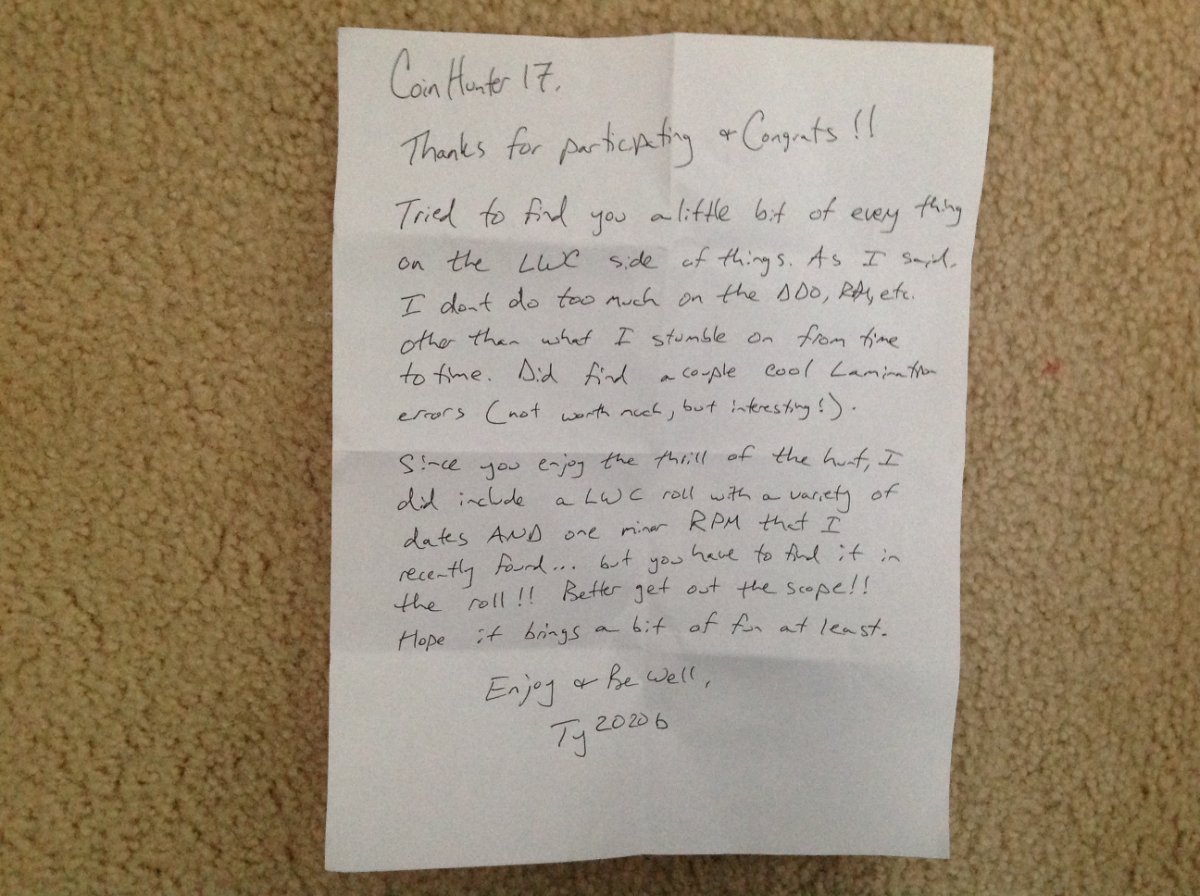 Coin Hunter 17,
Thanks for participating & Congrats!!
Tried to find you a little bit of every thing
on the LWC side of things. As I said,
I dont do too much on the DDO, RPM, etc.
other than what I stumble on from time
to time. Did find a couple cool Lamination
errors (not worth much, but interesting!).
Since you enjoy the thrill of the hunt, I
did include a LWC roll with a variety of
dates AND one minor RPM that I
recently found... but you have to find it in
the roll!! Better get out the scope!!
Hope it brings a bit of fun at least.
Enjoy & Be Well,
Ty2020b